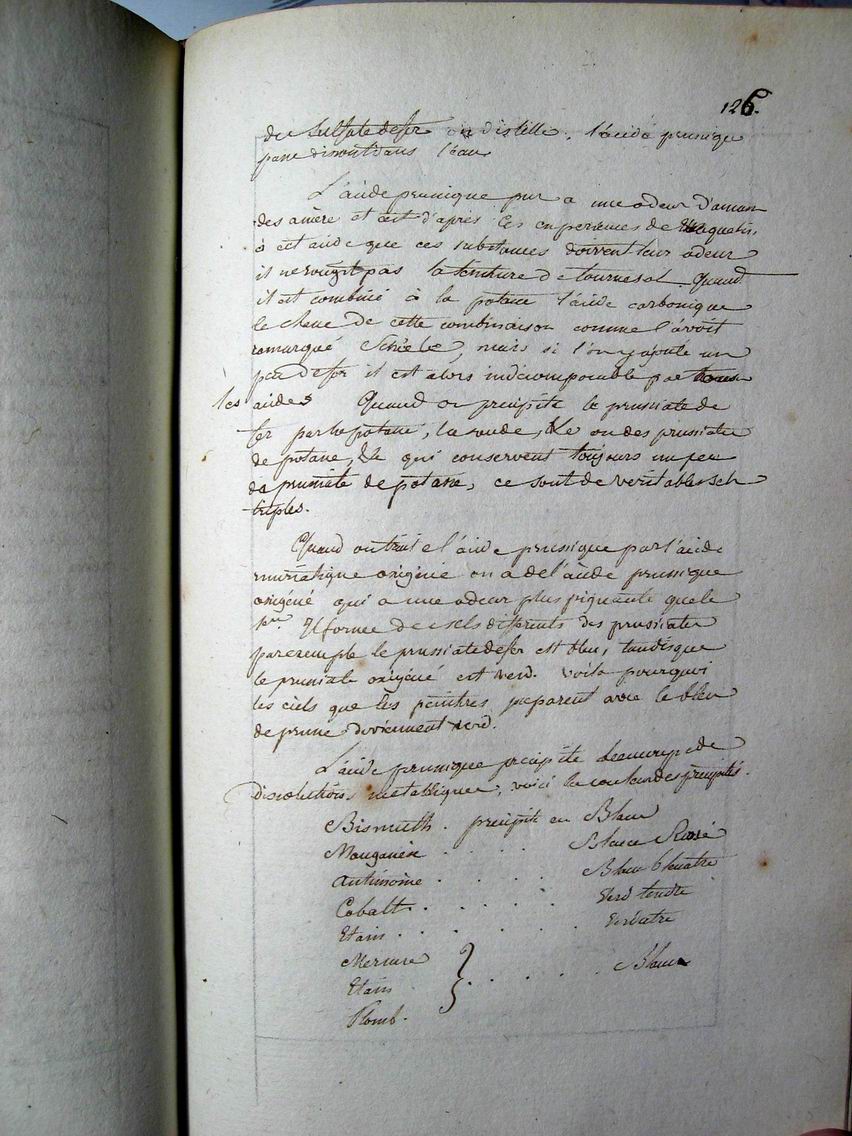 126.
du Sulfate de fer on distille. l'acide prussique
passe dissout dans l'eau
L'acide prussique pur a une odeur d'aman
des amère et c'est d'après les experiences de Vauquelin,
à cet acide que ces substances doivent leur odeur
il ne rougit pas la teinture de tournesol. Quand
il est combiné à la potasse l'acide carbonique
le chasse de cette combinaison comme l'avoit
remarqué Schéele, mais si l'on y ajoute un
peu de fer il est alors indécomposable par tous
les acides Quand on précipite le prussiate de
fer par la potasse, la soude, &c on a des prussiates
de potasse, &c qui conservent toujours un peu
de prussiate de potasse, ce sont de veritables sels
triples.
Quand on traite l'acide prussique par l'acide
muriatique oxigéné on a de l'acide prussique
oxigéné qui a une odeur plus piquante que le
per. Il forme des sels differents des prussiates
par exemple le prussiate de fer est bleu, tandis que
le prussiate oxigéné est verd. voila pourquoi
les ciels que les peintres preparent avec le bleu
de prusse deviennent verd.
L'acide prussique précipite beaucoup de
dissolutions metalliques, voici la couleur des précipités.
Bismuth. précipité en Blanc
Manganèse . . . . Blanc Rosé
Antimoine . . . . Blanc bleuatre
Cobalt. . . . . . Verd tendre
Etain . . . . . . Verdatre
Mercure
Etain } . . . . Blanc
Plomb.